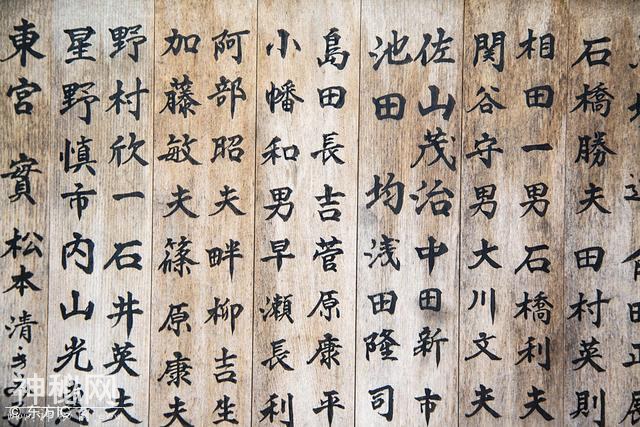 石橋勝夫 田村英則
相田一男 石橋利夫
関谷守男 大川文夫
佐山茂治 中田新市
池田 均 浅田隆司
島田長吉 菅原康平
小幡和男 早瀬長利
阿部昭夫 畔柳吉生
加藤敏夫 篠原康夫
野村欣一 石井英夫
星野慎市 内山光
東宮 實 松本清
神秘网
© 东方IC